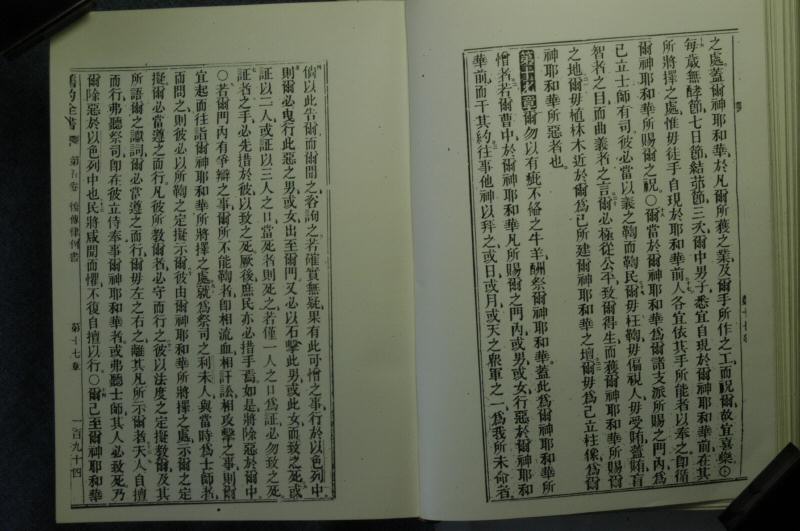 之處蓋爾神耶和華於凡爾所獲之業及爾手所作之工而祝爾故宜喜樂
每歲無酵節七日節結茆節三次爾中男子悉宜自現於爾神耶和華前在其
所將擇之處惟毋徒手自現於耶和華前人各宜依其手所能者以奉之即循
爾神耶和華所賜爾之祝〇爾當於爾神耶和華爲爾諸支派所賜之門內爲
己立士師有司彼必當以義之鞫而鞫民爾毋枉鞫毋偏視人毋受賄蓋賄盲
智者之目而曲義者之言爾必極從公平致爾得生而獲爾神耶和華所賜爾
之地爾毋植林木近於爾爲己所建爾神耶和華之壇爾毋爲己立柱像爲爾
神耶和華所惡者也
第十七章爾勿以有疵不修之牛羊酬祭爾神耶和華蓋此爲爾神耶和華所
憎者若爾曹中於爾神耶和華凡所賜爾之門內或男或女行惡於爾神耶和
華前而干其約往事他神以拜之或日或月或天之衆軍之一爲我所未命者
倘以此告爾而爾聞之咨詢之若確實無疑果有此可憎之事行於以色列中
則爾必曳行此惡之男或女出至爾門又必以石擊此男或此女而致之死或
証以二人或証以三人之口當死者則死之若僅一人之口爲証必勿致之死
証者之手必先措於彼以致之死厥後庶民亦必措手焉如是將除惡於爾中
〇若爾門內有爭辯之事爾所不能鞫者即相流血相訐訟相攻擊之事則爾
宜起而往詣爾神耶和華所將擇之處就爲祭司之利未人與當時爲士師者
而問之則彼必以所鞫之定擬示爾彼由爾神耶和華所將擇之處示爾之定
擬爾必當遵之而行凡彼所教爾者必守而行之彼以法度之定擬教爾及其
所語爾之讞詞爾必當遵之而行爾毋左之右之離其凡所示爾者夫人自擅
而行弗聽祭司即在彼立侍奉事爾神耶和華者或弗聽士師其人必致死乃
爾除惡於以色列中也民將咸聞而懼不復自擅以行〇爾已至爾神耶和華
舊約全書 第五卷 復傳律例書 第十七章 一百九十四